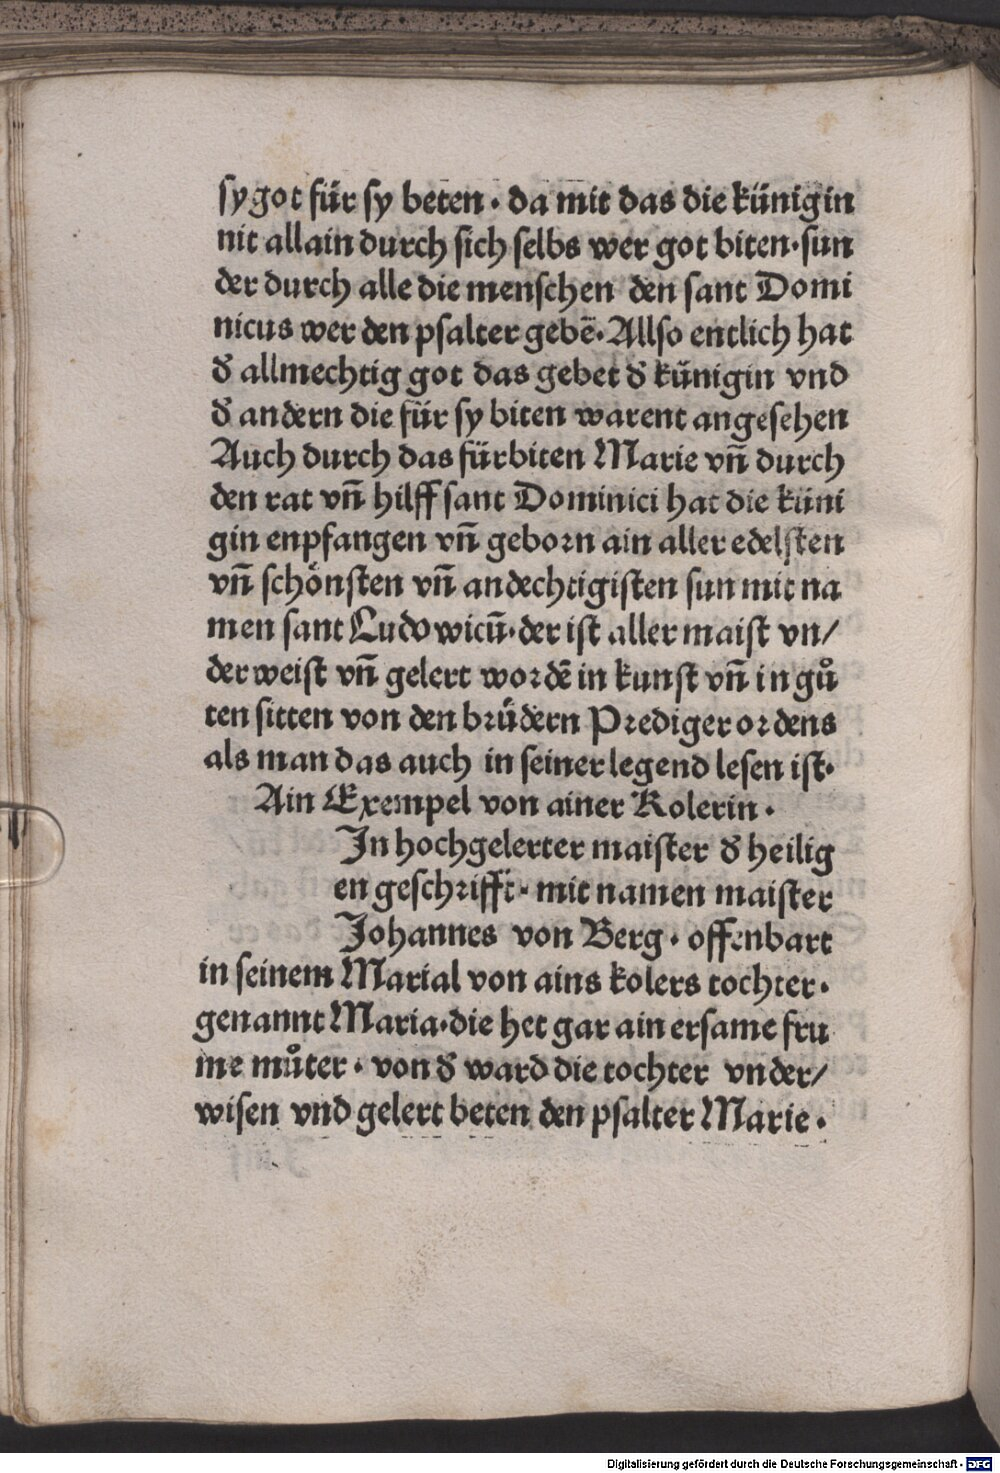 sy got für sy beten · da mit das die künigin
nit allain durch sich selbs wer got biten · sun
der durch alle die menschen den sant Domi
nicus wer den psalter gebē · Allso entlich hat
đ allmechtig got das gebet đ künigin vnd
đ andern die für sy biten warent angesehen
Auch durch das fürbiten Marie vn̄ durch
den rat vn̄ hilff sant Dominici hat die küni
gin enpfangen vn̄ geborn ain aller edelsten
vn̄ schönsten vn̄ andechtigisten sun mit na
men sant Ludowicū · der ist aller maist vn/
der weist vn̄ gelert wordē in kunst vn̄ in gů
ten sitten von den brüdern Prediger ordens
als man das auch in seiner legend lesen ist ·
Ain Exempel von ainer Kolerin ·
In hochgelerter maister đ heilig
en geschrifft · mit namen maister
Johannes von Berg · offenbart
in seinem Marial von ains kolers tochter ·
genannt Maria · die het gar ain ersame fru
me můter · von đ ward die tochter vnder/
wisen vnd gelert beten den psalter Marie ·
Digitalisierung gefördert durch die Deutsche Forschungsgemeinschaft - DFG